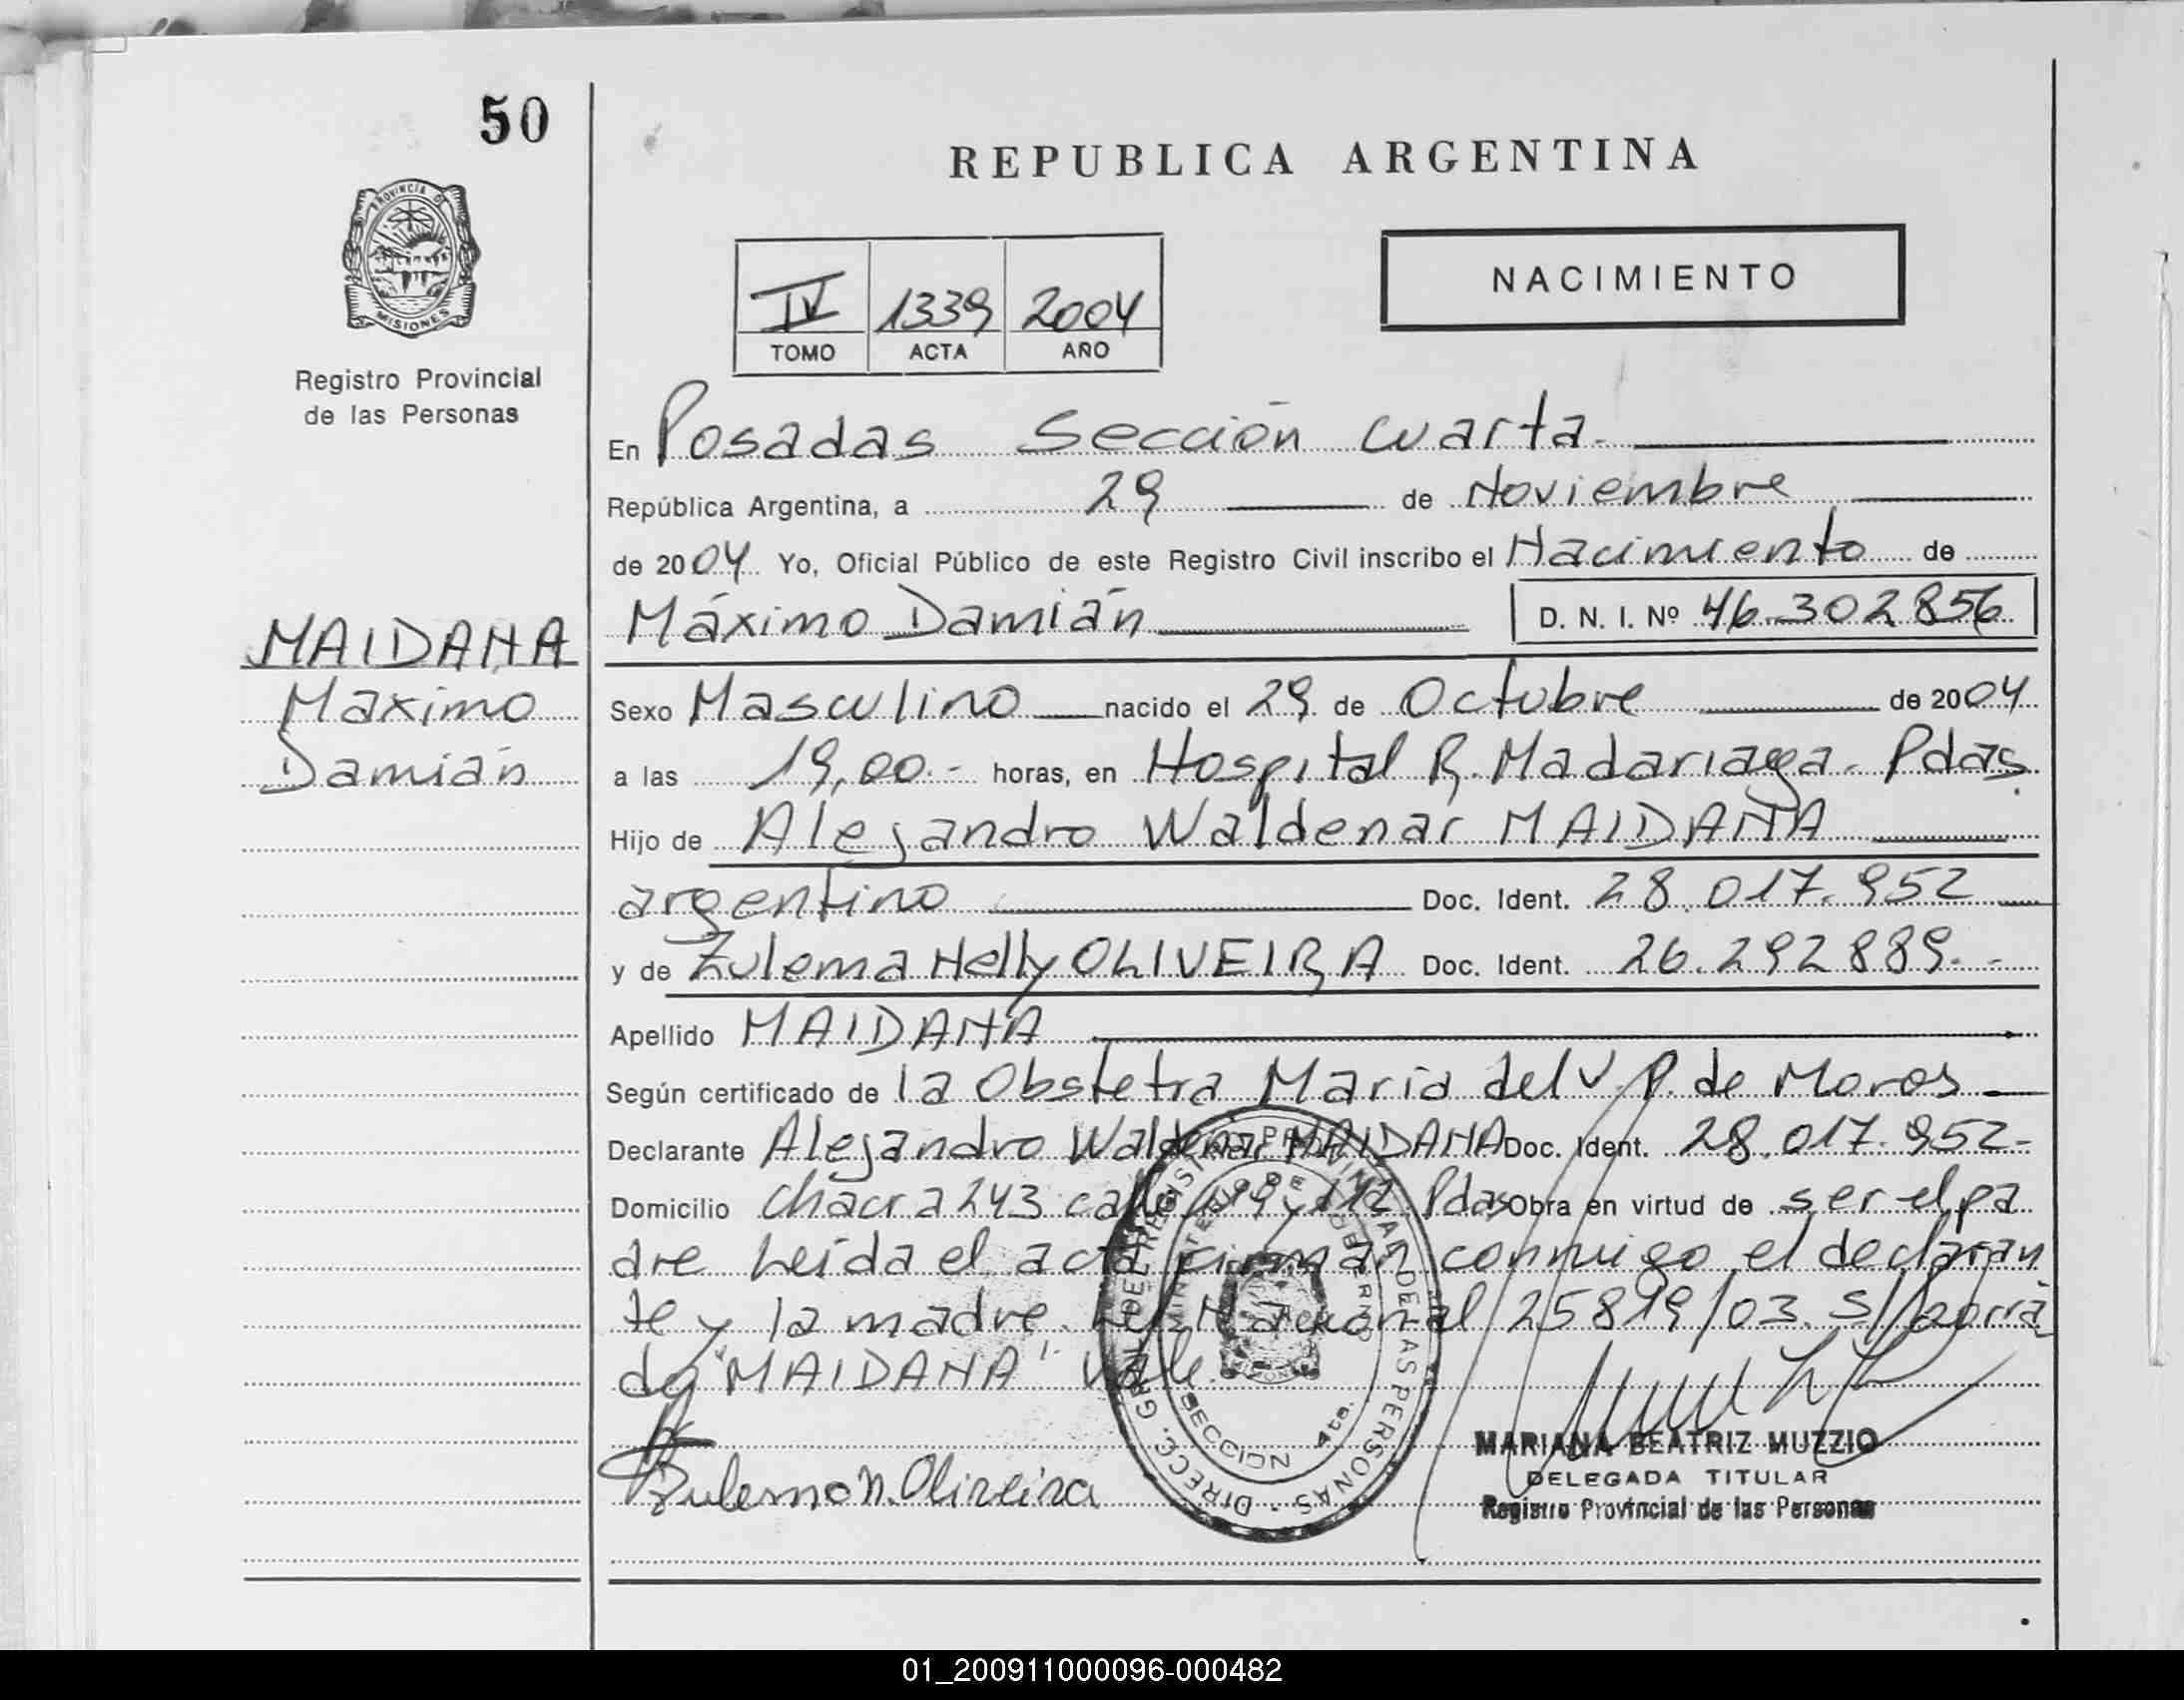 50
REPUBLICA ARGENTINA
PROVINCIA DE
MISIONES
Registro Provincial
de las Personas
NACIMIENTO
IV 1339 2004
TOMO ACTA AÑO
En Posadas Sección cuarta.
República Argentina, a 29 de Noviembre
de 2004 Yo, Oficial Público de este Registro Civil inscribo el Nacimiento de
Máximo Damián D. N. I. Nº 46.302.856
MAIDANA
Máximo
Damián
Sexo Masculino nacido el 29 de Octubre de 2004
a las 19,00.- horas, en Hospital R. Madariaga. Pdas.
Hijo de Alejandro Waldenar MAIDANA
argentino Doc. Ident. 28.017.952
y de Zulema Nelly OLIVEIRA Doc. Ident. 26.292.889.-
Apellido MAIDANA
Según certificado de la Obstetra María del V. P. de Moros
Declarante Alejandro Waldenar MAIDANA Doc. Ident. 28.017.952-
Domicilio Chacra 243 calle 119 y 112 Pdas Obra en virtud de ser el pa
dre Leída el acta firman conmigo el declaran
te y la madre. Ley Nacional 25819/03. S/borra
do "MAIDANA" Vale.
DIREC. GRAL. DEL REGISTRO PROVINCIAL DE LAS PERSONAS
MINISTERIO DE GOBIERNO
SECCION 4ta.
Zulema N. Oliveira
MARIANA BEATRIZ MUZZIO
DELEGADA TITULAR
Registro Provincial de las Personas
01_200911000096-000482